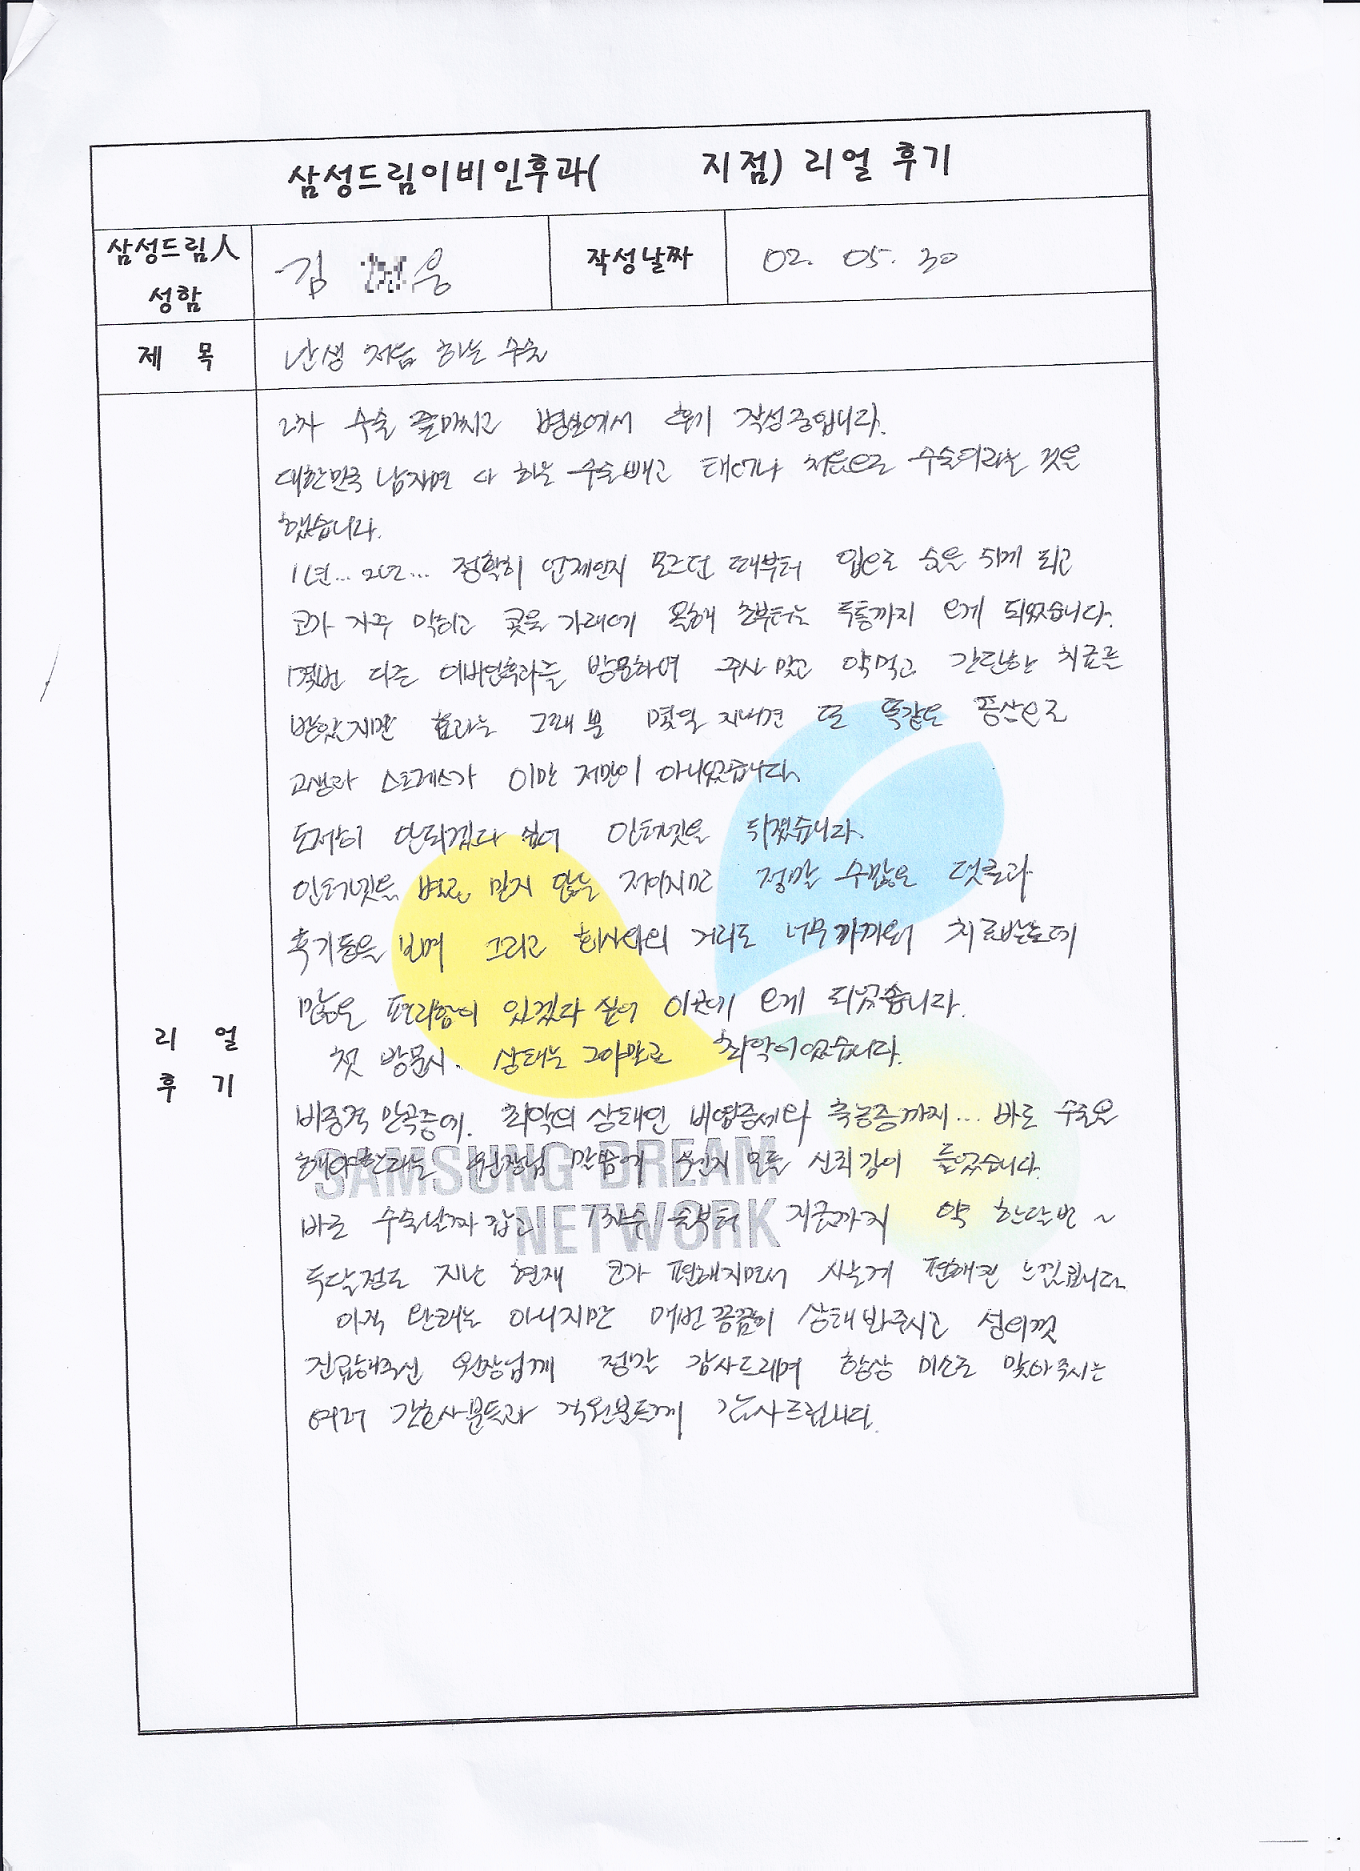 삼성드림이비인후과( 지점) 리얼 후기
삼성드림人
성함
김 웅
작성날짜
02. 05. 30
제 목
난생 처음 하는 수술
리 얼
후 기
2차 수술 끝마치고 병실에서 후기 작성중입니다.
대한민국 남자면 다 하는 수술빼고 태어나 처음으로 수술이라는 것을
했습니다.
1년... 2년... 정확히 언제인지 모르던 때부터 입으로 숨을 쉬게 되고
코가 자꾸 막히고 콧물 가래에 올해 초부터는 두통까지 오게 되었습니다.
몇번 다른 이비인후과를 방문하여 주사 맞고 약먹고 간단한 치료를
받았지만 효과는 그때 뿐 몇일 지나면 또 똑같은 증상으로
고생과 스트레스가 이만 저만이 아니였습니다.
도저히 안되겠다 싶어 인터넷을 뒤졌습니다.
인터넷을 별로 믿지 않는 저이지만 정말 수많은 댓글과
후기들을 보며 그리고 회사와의 거리도 너무 가까워 치료받는데
많은 편리함이 있겠다 싶어 이곳에 오게 되었습니다.
첫 방문시. 상태는 그야말로 최악이였습니다.
비중격 만곡증에. 최악의 상태인 비염증세와 축농증까지... 바로 수술을
해야한다는 원장님 말씀에 왠지 모를 신뢰감이 들었습니다.
바로 수술날짜 잡고 1차수술부터 지금까지 약 한달반 ~
두달정도 지난 현재 코가 편해지면서 사는게 편해진 느낌입니다.
아직 완쾌는 아니지만 매번 꼼꼼히 상태 봐주시고 성의껏
진료해주신 원장님께 정말 감사드리며 항상 미소로 맞아주시는
여러 간호사분들과 직원분들께 감사드립니다.
SAMSUNG DREAM
NETWORK